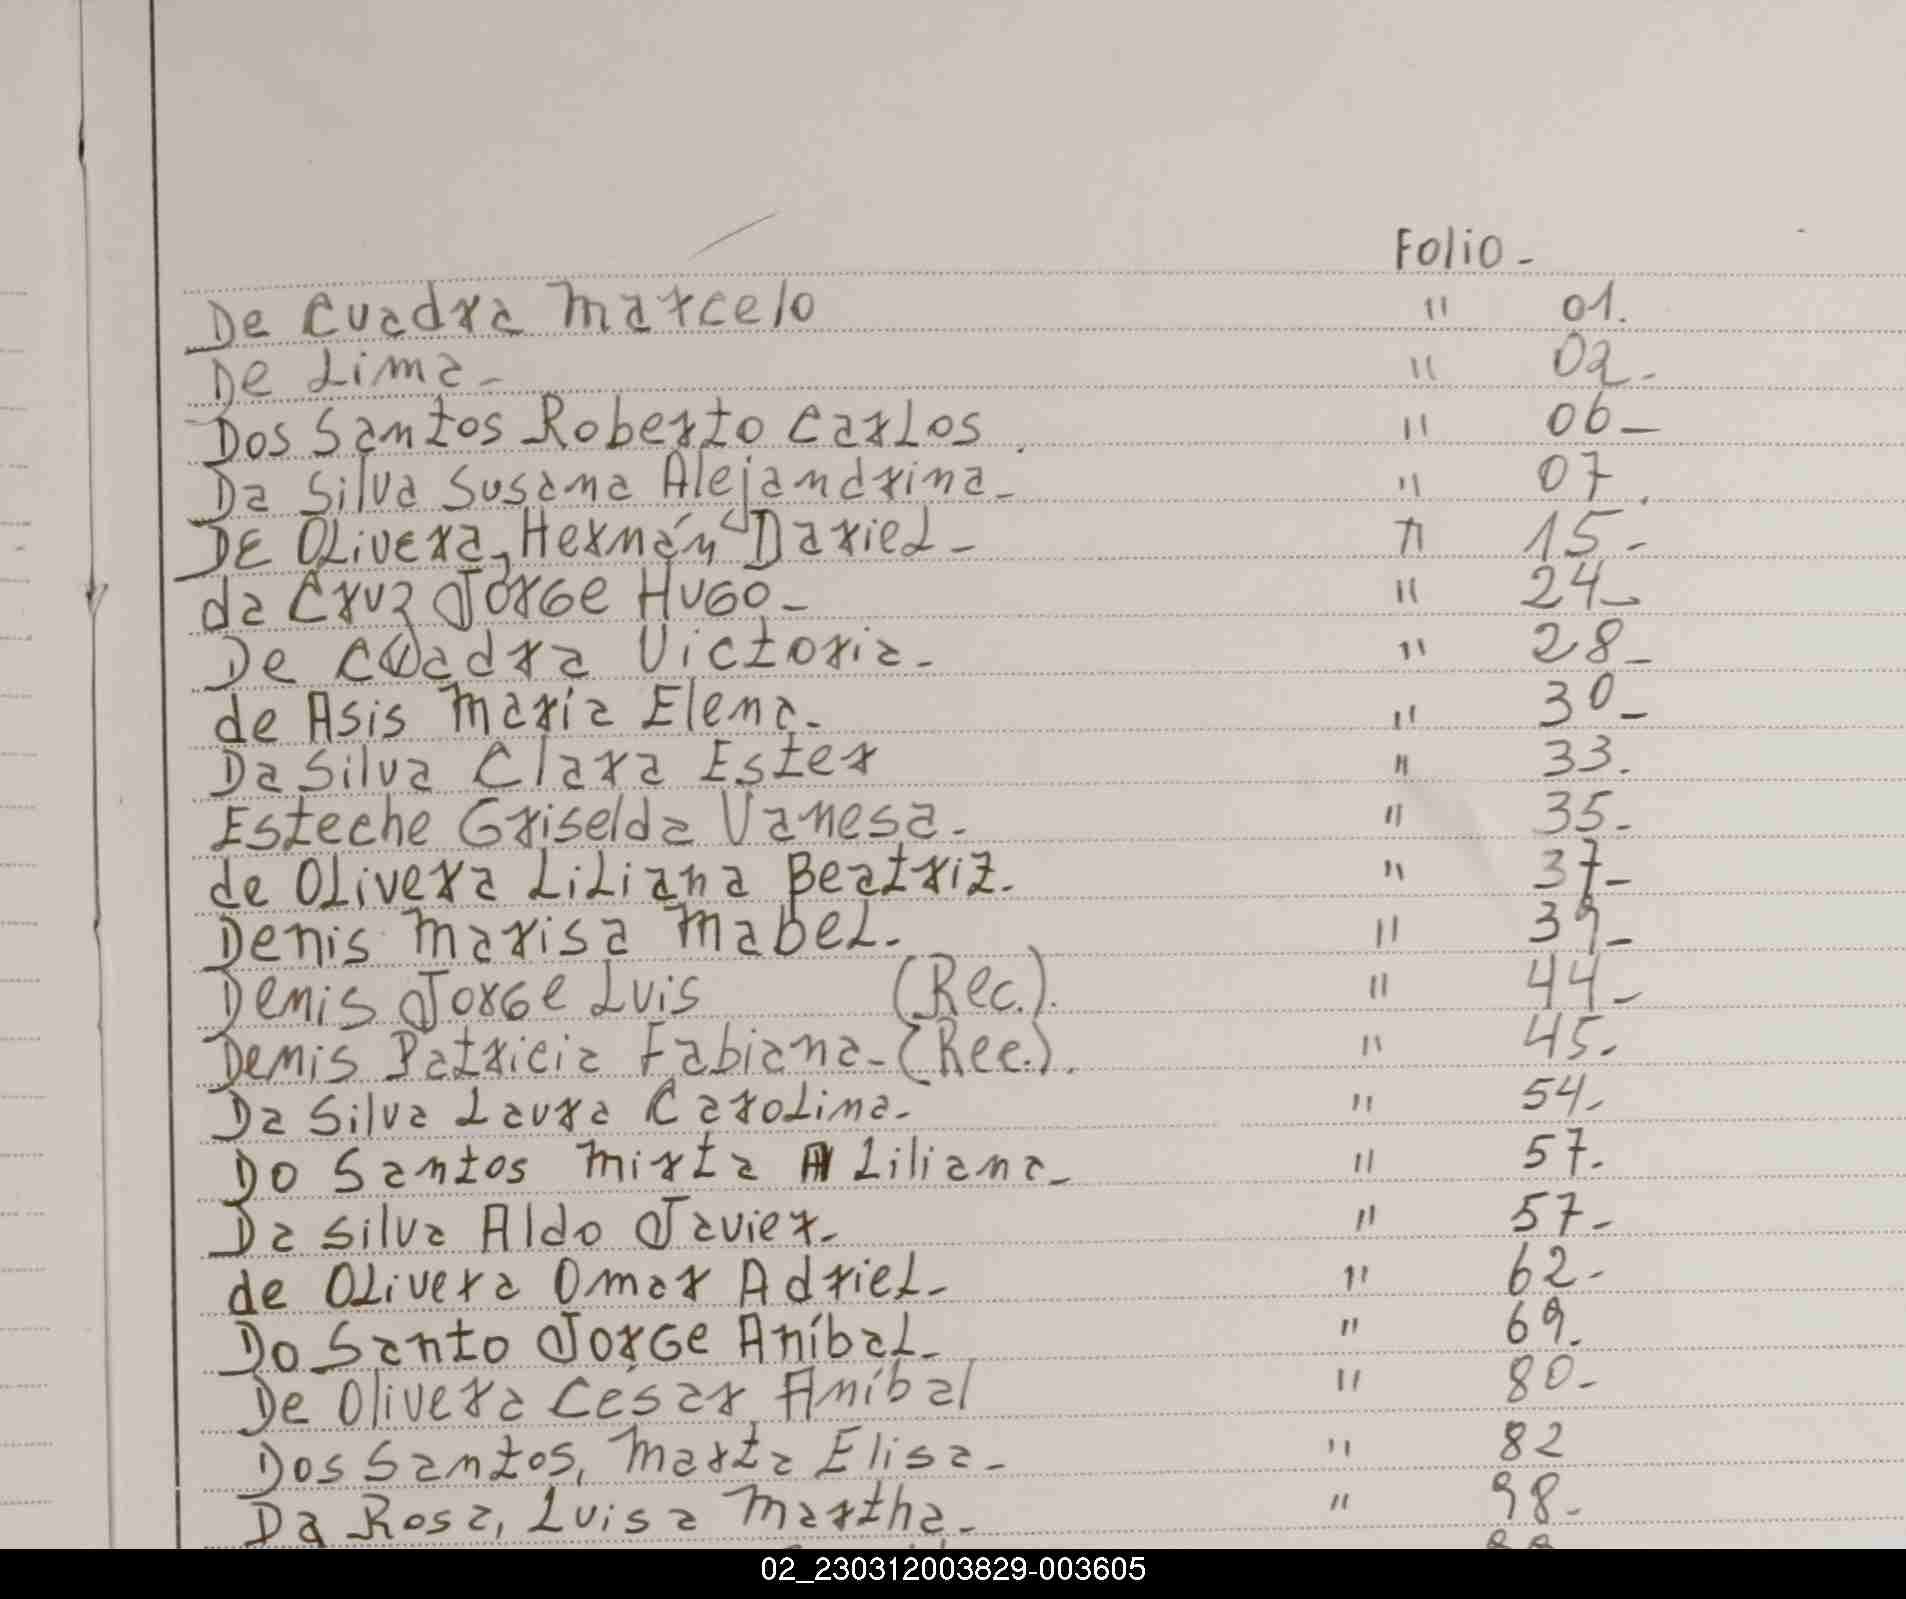 Folio -
De Cuadra Marcelo " 01.
De Lima - " 02 -
Dos Santos Roberto Carlos. " 06 -
Da Silva Susana Alejandrina - " 07.
DE Olivera, Hernán Dariel - " 15 -
da Cruz Jorge Hugo - " 24 -
De Cuadra Victoria - " 28 -
de Asis María Elena - " 30 -
Da Silva Clara Ester " 33.
Esteche Griselda Vanesa - " 35 -
de Olivera Liliana Beatriz. " 37 -
Denis Marisa Mabel - " 39 -
Denis Jorge Luis (Rec.). " 44 -
Denis Patricia Fabiana - (Rec.). " 45 -
Da Silva Laura Carolina - " 54 -
Do Santos Mirta Liliana - " 57 -
Da Silva Aldo Javier - " 57 -
de Olivera Omar Adriel - " 62 -
Do Santo Jorge Aníbal - " 69.
De Olivera César Aníbal " 80 -
Dos Santos, Marta Elisa - " 82
Da Rosa, Luisa Martha - " 98 -
02_230312003829-003605